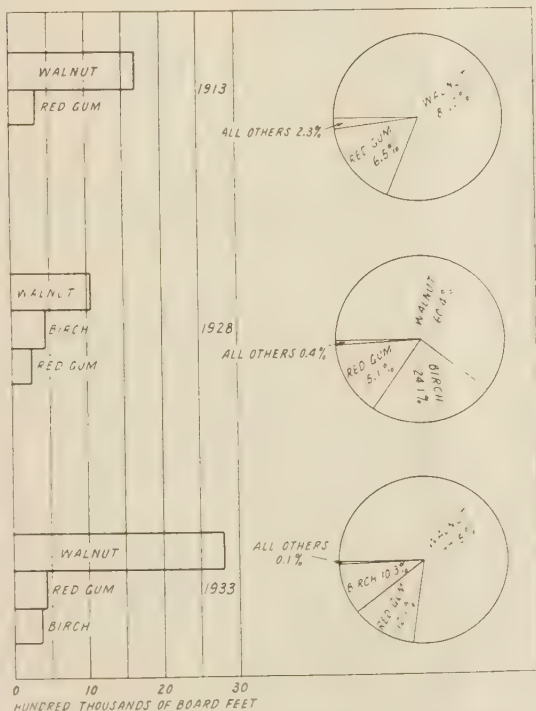 WALNUT
RED GUM
1913
ALL OTHERS 2.3%
RED GUM
WALNUT
BIRCH
RED GUM
1928
ALL OTHERS 0.4%
WALNUT
RED GUM
BIRCH
24.1%
WALNUT
RED GUM
BIRCH
1933
ALL OTHERS
0.1%
BIRCH 10.3%
RED GUM
0 10 20 30
HUNDRED THOUSANDS OF BOARD FEET